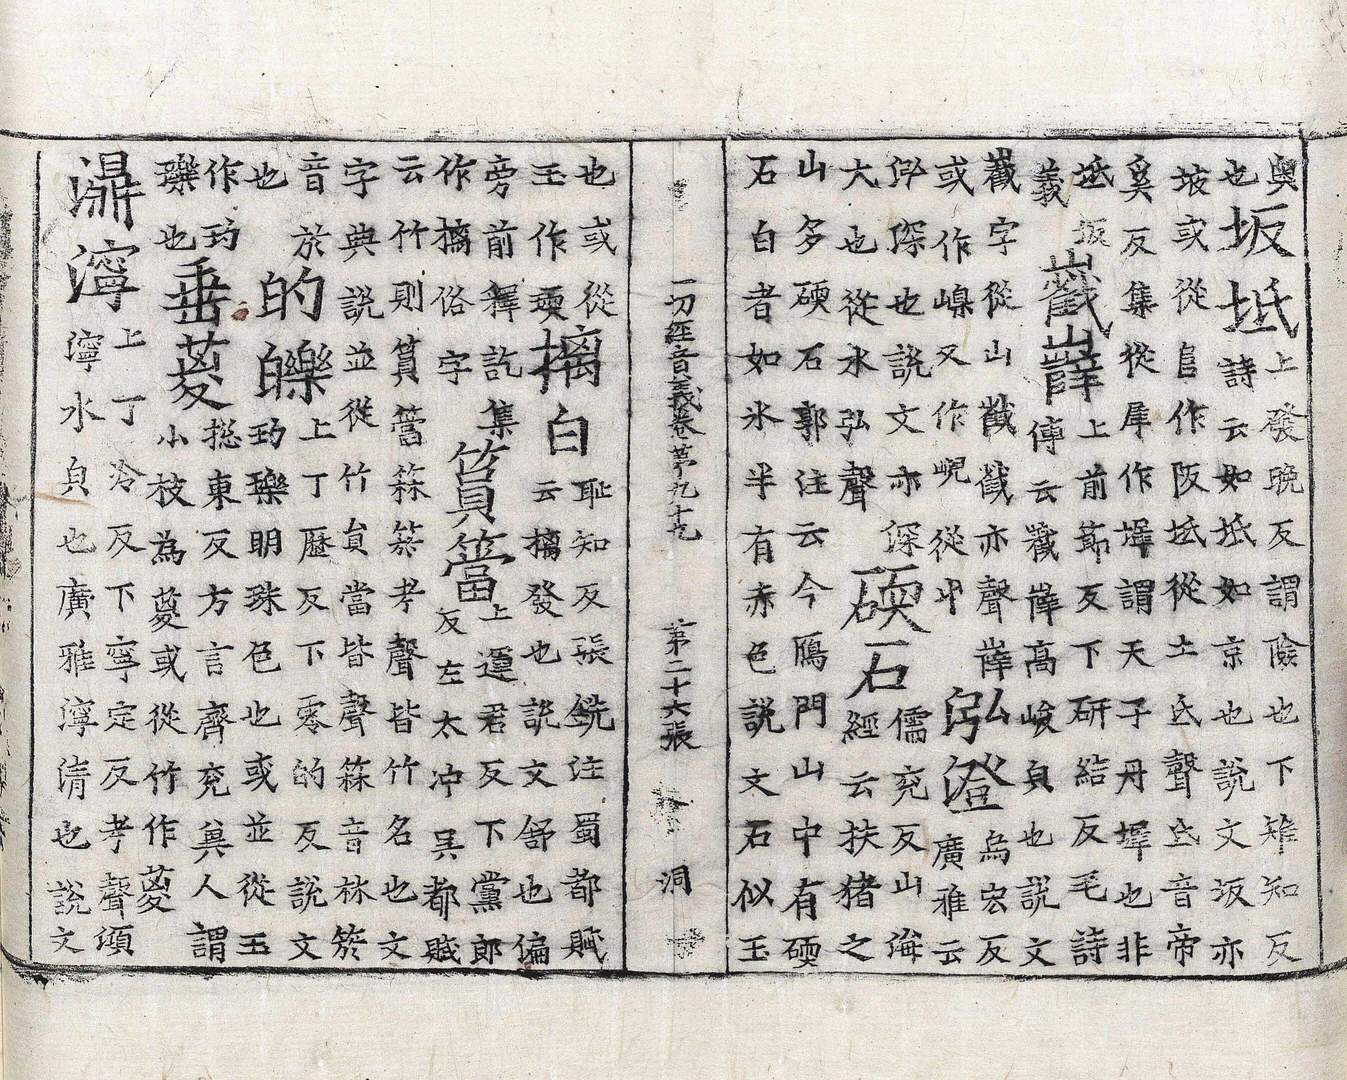 奥
也
坂坻
上發晚反謂險也下雉知反
詩云如坻如京也說文坂亦
坡或從𨸏作阪坻從土氐聲氐音帝
奚反集從犀作墀謂天子丹墀也非
坻坂
義
巀嶭
上前節反下研結反毛詩
傳云巀嶭高峻皃也說文
巀字從山截截亦聲嶭
或作嵲又作峴從屮
泓澄
烏宏反
廣雅云
泓深也說文亦深
大也從水弘聲
碝石
儒兖反山海
經云扶猪之
山多碝石郭注云今鴈門山中有碝
石白者如氷半有赤色說文石似玉
一切經音義卷第九十九 第二十六張 洞
也或從
玉作瓀
摛白
恥知反張銑注蜀都賦
云摛發也說文舒也徧
旁前釋訖集
作摛俗字
篔簹
上運君反下黨郎
反左太冲吳都賦
云竹則篔簹箖箊考聲皆竹名也文
字典說並從竹員當皆聲箖音林箊
音於
也
的皪
上丁歷反下零的反說文
玓瓅明珠色也或並從玉
作玓
瓅也
垂葼
揔東反方言齊兖兾人謂
小枝為葼或從竹作䈦
濎濘
上丁冷反下寧定反考聲頂
濘水皃也廣雅濘清也說文